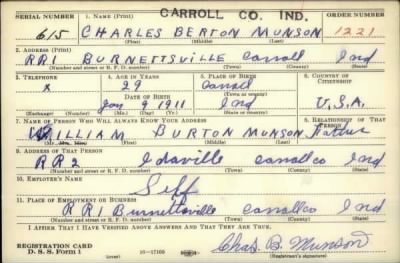 CARROLL CO, IND.
SERIAL NUMBER 1. NAME (Print) ORDER NUMBER
615 CHARLES BERTON MUNSON 1221
(First) (Middle) (Last)
2. ADDRESS (Print)
RR1 BURNETTSVILLE Carroll Ind
(Number and street or R. F. D. number) (Town) (County) (State)
3. TELEPHONE 4. AGE IN YEARS 5. PLACE OF BIRTH 6. COUNTRY OF CITIZENSHIP
X 29 Carroll
DATE OF BIRTH (Town or county)
Jan 9 1911 Ind U.S.A.
(Exchange) (Number) (Mo.) (Day) (Yr.) (State or country)
7. NAME OF PERSON WHO WILL ALWAYS KNOW YOUR ADDRESS 8. RELATIONSHIP OF THAT PERSON
WILLIAM BURTON MUNSON Father
(Mr., Mrs., Miss) (First) (Middle) (Last)
9. ADDRESS OF THAT PERSON
RR2 Idaville Carroll co Ind
(Number and street or R. F. D. number) (Town) (County) (State)
10. EMPLOYER'S NAME
Self
11. PLACE OF EMPLOYMENT OR BUSINESS
RR1 Burnettsville Carroll co Ind
(Number and street or R. F. D. number) (Town) (County) (State)
I AFFIRM THAT I HAVE VERIFIED ABOVE ANSWERS AND THAT THEY ARE TRUE.
REGISTRATION CARD
D. S. S. Form 1 16-17105 Chas B. Munson
(Registrant's signature)